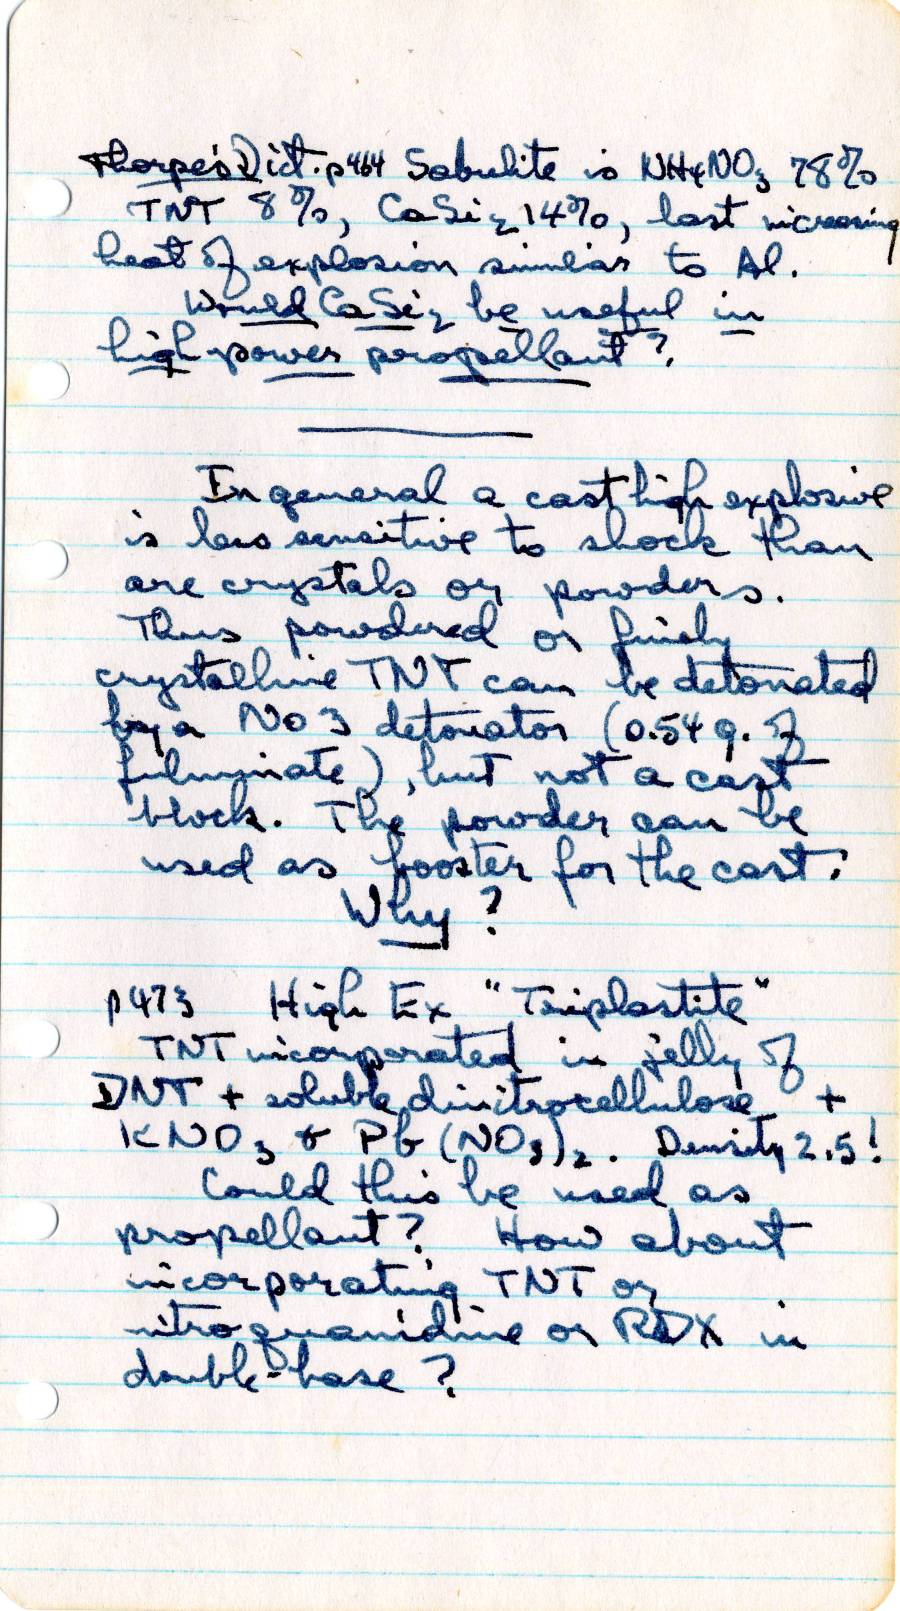 Thorpe's Dict. p464 Sabulite is NH4NO3 78%
TNT 8%, CaSi2 14%, last increasing
heat of explosion similar to Al.
Would CaSi2 be useful in
high power propellant?
In general a cast high explosive
is less sensitive to shock than
are crystals or powders.
Thus powdered or finely
crystalline TNT can be detonated
by a No 3 detonator (0.54 g. of
fulminate), but not a cast
block. The powder can be
used as booster for the cast.
Why?
p473 High Ex "Triplastite"
TNT incorporated in jelly of
DNT + soluble dinitrocellulose +
KNO3 & Pb(NO3)2. Density 2.5!
Could this be used as
propellant? How about
incorporating TNT or
nitroguanidine or RDX in
double-base?